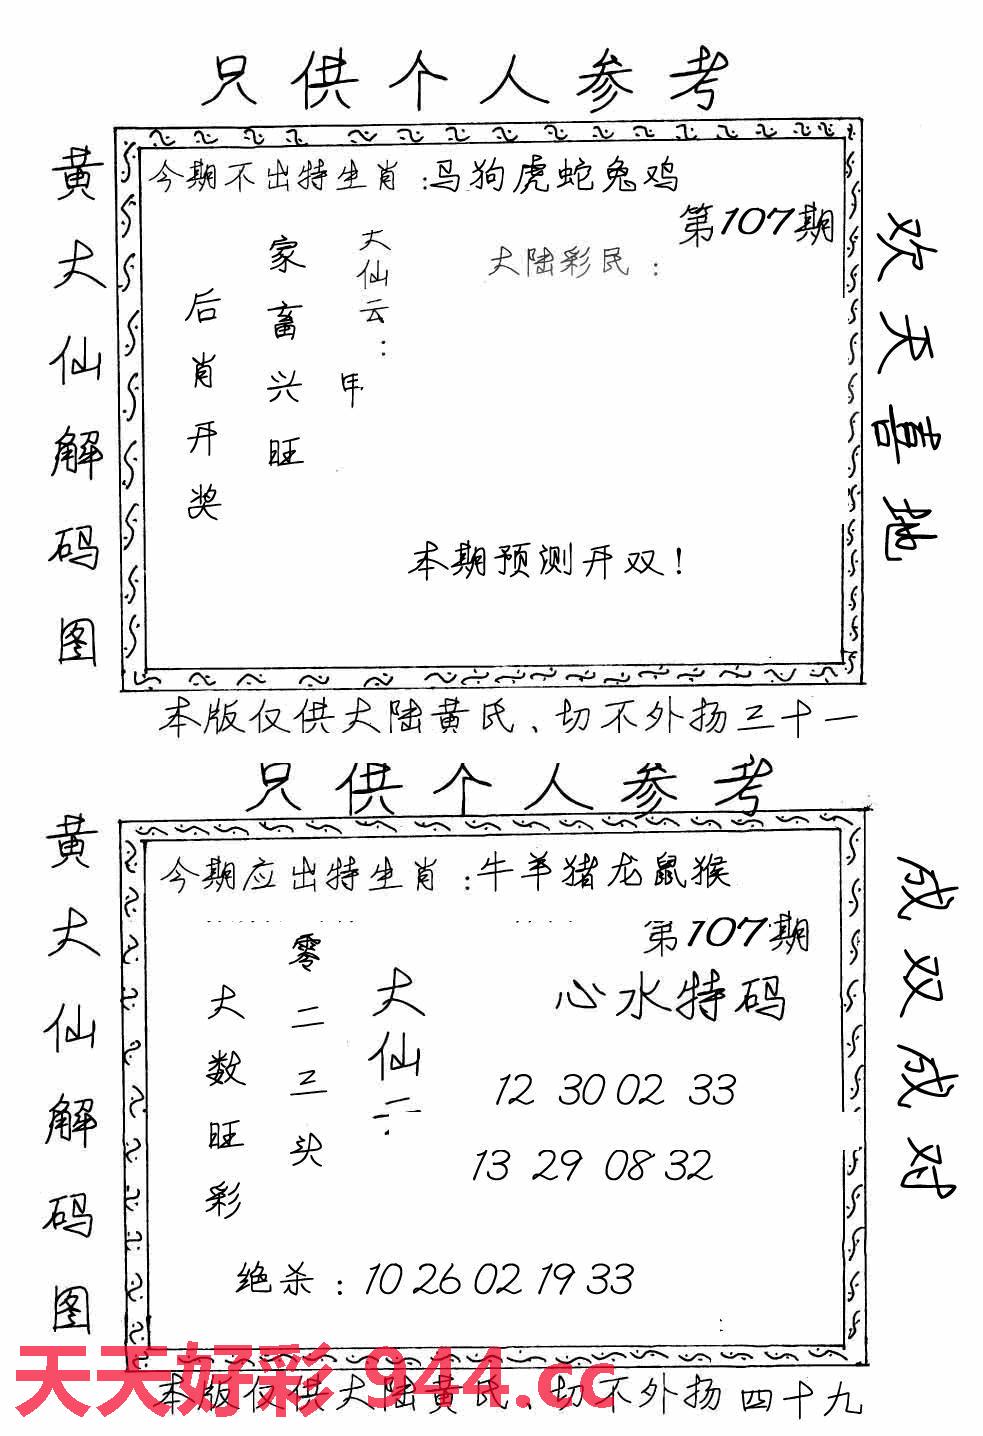 只供个人参考
黄大仙解码图
今期不出特生肖:马狗虎蛇兔鸡
第107期
大陆彩民:
大仙云:
甲
家畜兴旺
后肖开奖
本期预测开双!
欢天喜地
本版仅供大陆黄氏、切不外扬三十一
只供个人参考
黄大仙解码图
今期应出特生肖:牛羊猪龙鼠猴
第107期
心水特码
大仙云:
零二三头
大数旺彩
12 30 02 33
13 29 08 32
绝杀:10 26 02 19 33
成双成对
天天好彩 944.cc
本版仅供大陆黄氏、切不外扬四十九